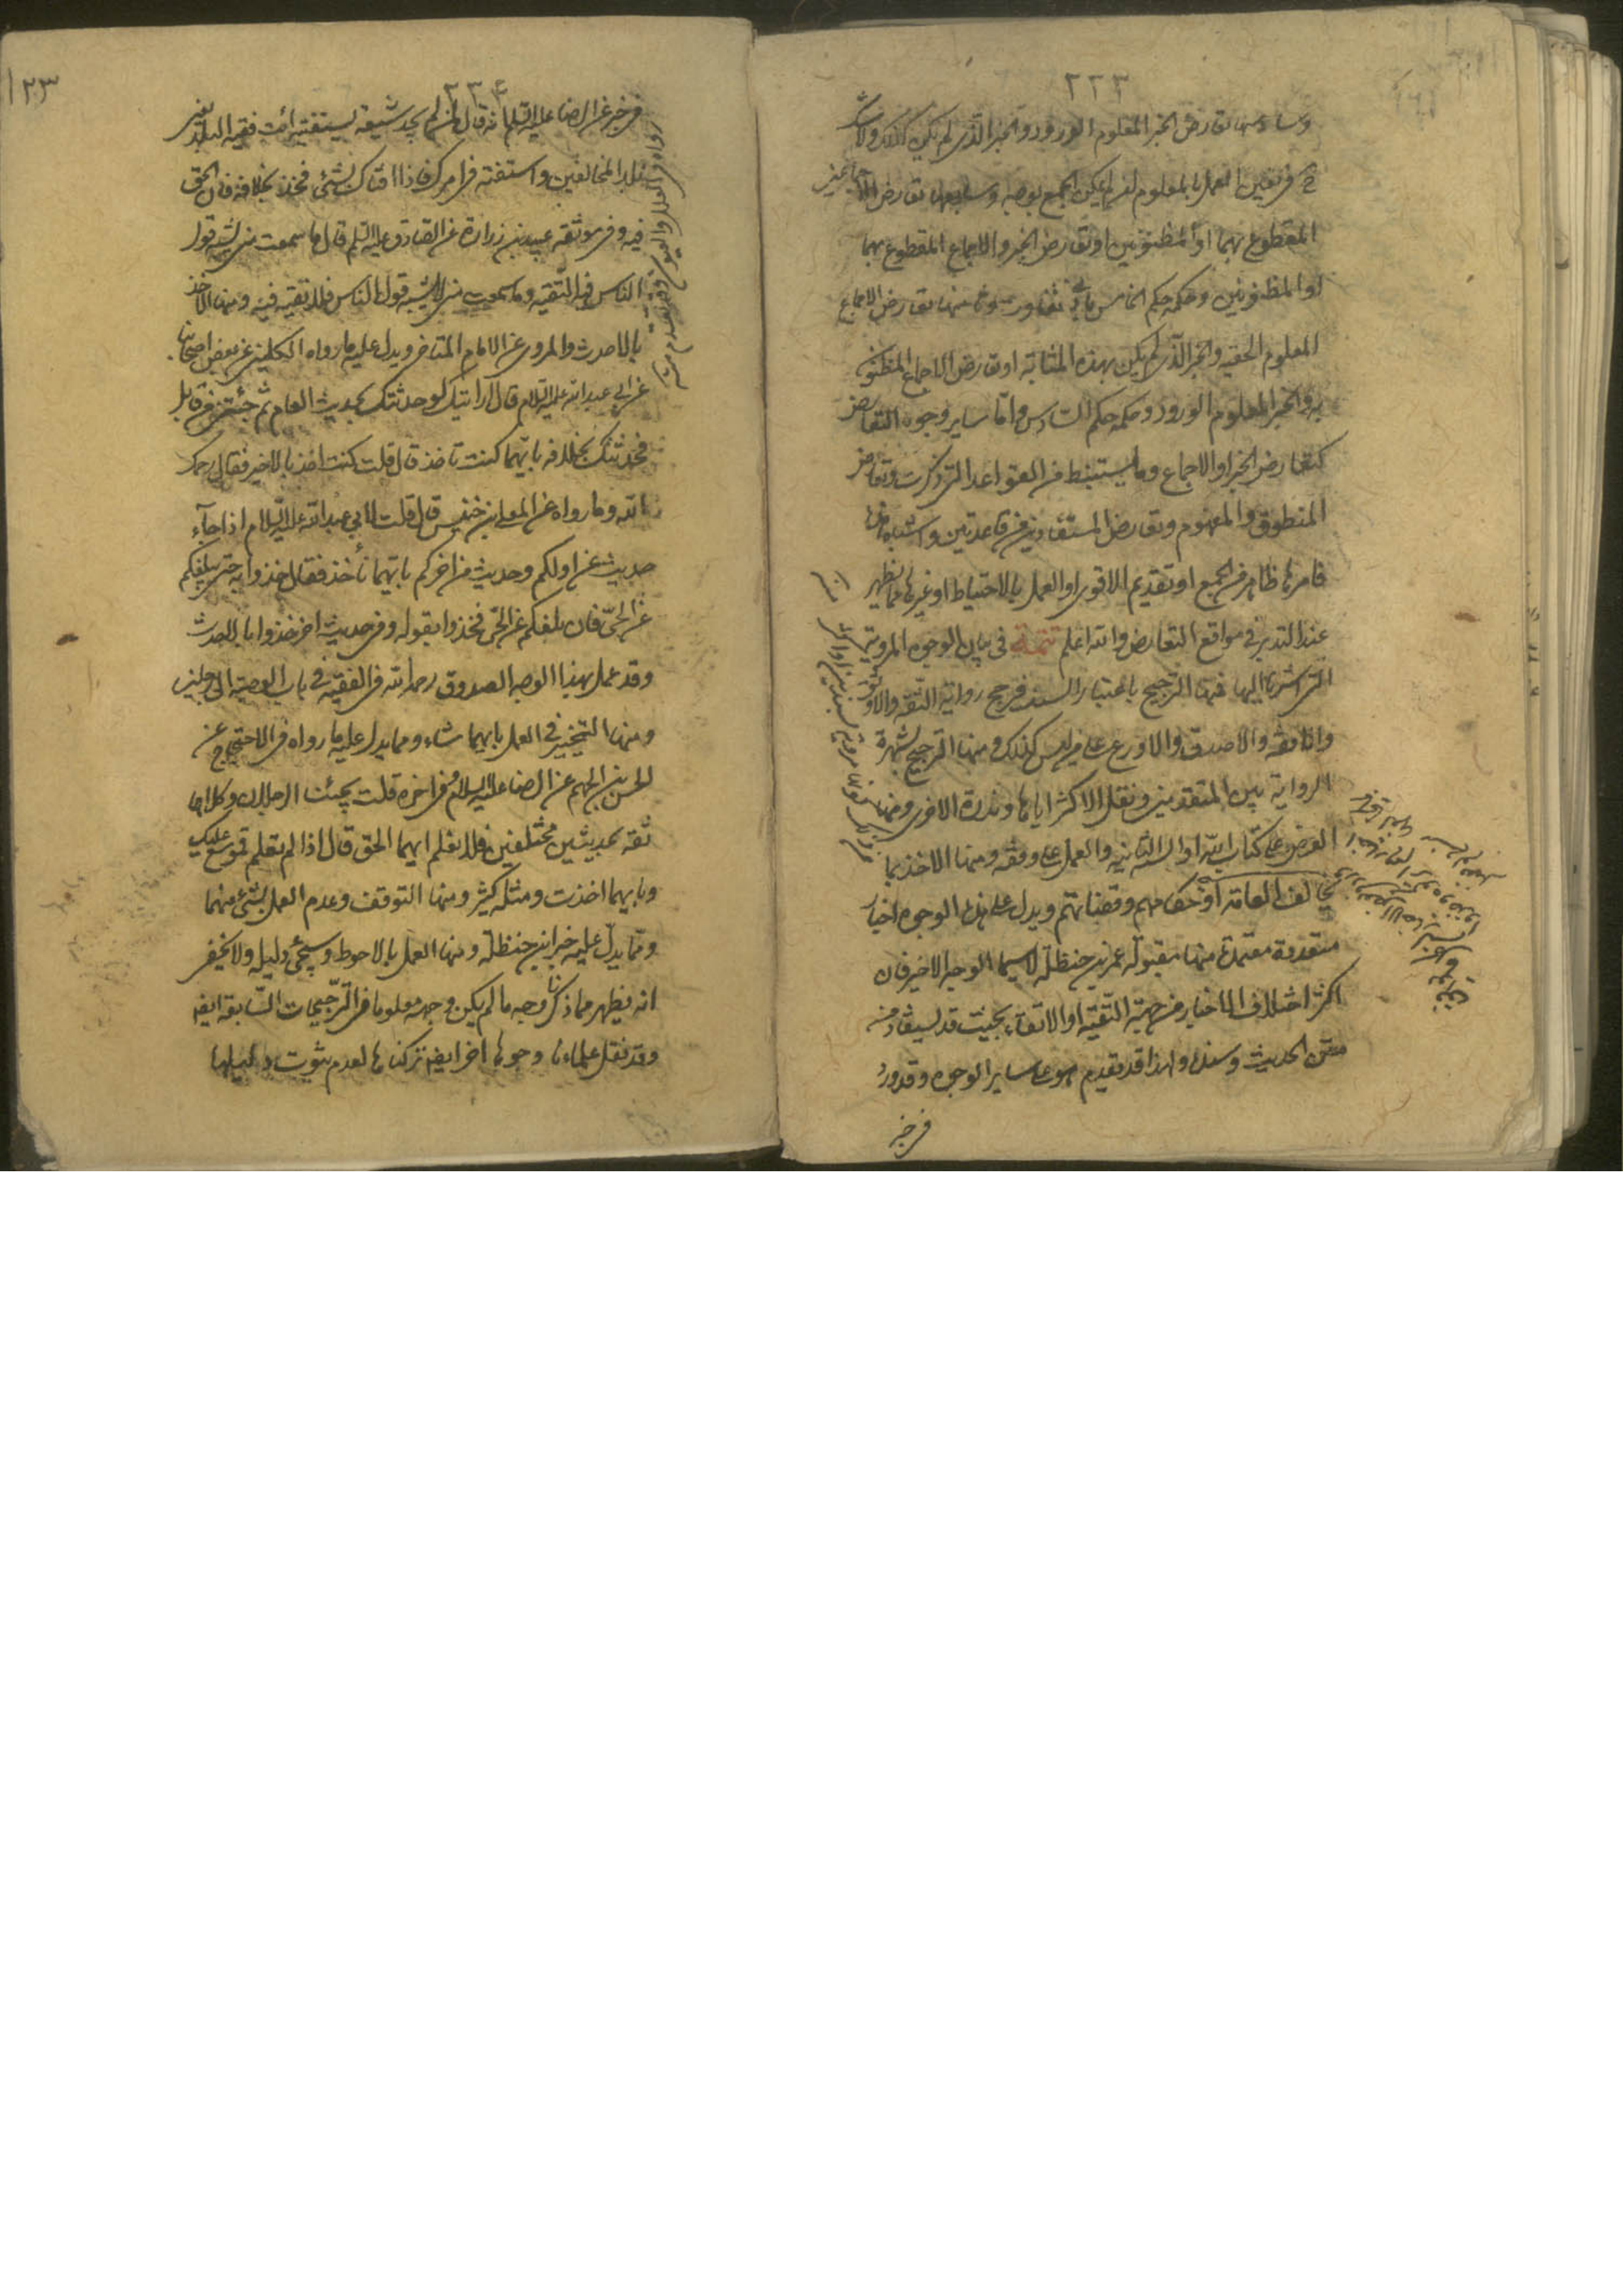 ٢٢٣
وسادسها تعارض الخبر المعلوم الورود والخبر الذى لم يكن كذلك ولا شك
ح فى تعين العمل بالمعلوم لو لم يمكن الجمع بوجه وسابعها تعارض الاجماعين
المقطوع بهما او المظنونين او تعارض الخبر والاجماع المقطوع بهما
او المظنونين وحكمه حكم الخامس مع تفاوت وثامنها تعارض الاجماع
المعلوم الحقية والخبر الذى لم يكن بهذه المثابة او تعارض الاجماع المظنون
به والخبر المعلوم الورود وحكمه حكم السادس واما ساير وجوه التعارض
كتعارض الخبر او الاجماع وما يستنبط من القواعد التى ذكرت وتعارض
المنطوق والمفهوم وتعارض المستفاد من قاعدتين واشباه ذلك
فامرها ظاهر من الجمع او تقديم الاقوى او العمل بالاحتياط او غيرها مما يظهر
عند التدبر فى مواقع التعارض والله اعلم تتمة فى بيان الوجوه المروية
التى اشرنا اليها فمنها الترجيح باعتبار السند فيرجح رواية الثقة والاوثق
والافقه والاصدق والاورع على من ليس كذلك ومنها الترجيح لشهرة
الرواية بين المتقدمين ونقل الاكثر اياها وندرة الاخرى ومنها
العرض على كتاب الله او السنة الثابتة والعمل على وفقه ومنها الاخذ بما
يخالف العامة او حكامهم وقضاتهم ويدل على هذه الوجوه اخبار
متعددة معتمدة منها مقبولة عمر بن حنظلة لاسيما الوجه الاخير فان
اكثر اختلاف الاخبار من جهة التقية او الاتقاء بحيث قد يستفاد من
متن الحديث وسنده ولهذا قد تقدم هو على ساير الوجوه وقد ورد
فى خبر
٢٢٤
١٢٣
فى خبر عن الرضا عليه السلم انه قال لمن لم يجد شيعة يستفتيه ائت فقيه البلد يعنى
بلد المخالفين واستفته فى امرك فاذا افتاك بشئ فخذ بخلافه فان الحق
فيه وفى موثقة عبيد بن زرارة عن الصادق عليه السلم قال ما سمعت منى يشبه قول
الناس فيه التقية وما سمعت منى لا يشبه قول الناس فلا تقية فيه ومنها الاخذ
بالاحدث والمروى عن الامام المتاخر ويدل عليه ما رواه الكلينى عن بعض اصحابنا
عن ابى عبد الله عليه السلام قال ارايتك لو حدثتك بحديث العام ثم جئتنى من قابل
فحدثتك بخلافه بايهما كنت تاخذ قال قلت كنت اخذ بالاخير فقال رحمك
الله وما رواه عن المعلى بن خنيس قال قلت لابي عبد الله عليه السلام اذا جآء
حديث عن اولكم وحديث من اخركم بايهما نأخذ فقال خذوا به حتى يبلغكم
عن الحىّ فان بلغكم عن الحىّ فخذوا بقوله وفى حديث اخر خذوا بالاحدث
وقد عمل بهذا الوجه الصدوق رحمه الله فى الفقيه فى باب الوصية الى رجلين
ومنها التخيير فى العمل بايهما شاء ومما يدل عليه ما رواه فى الاحتجاج عن
الحسن بن الجهم عن الرضا عليه السلام وفى اخره قلت يجيئنا الرجلان وكلاهما
ثقة بحديثين مختلفين فلا نعلم ايهما الحق قال اذا لم تعلم فموسع عليك
وبايهما اخذت ومثله كثير ومنها التوقف وعدم العمل بشئ منهما
وممّا يدلّ عليه خبر ابن حنظلة ومنها العمل بالاحوط وسيجئ دليله ولا يخفى
انه يظهر مما ذكرنا وجه ما لم يكن وجهه معلوما فى الترجيحات السّابقة ايضا
وقد نقل علماءنا وجوها اخر ايضا تركناها لعدم ثبوت دليلها